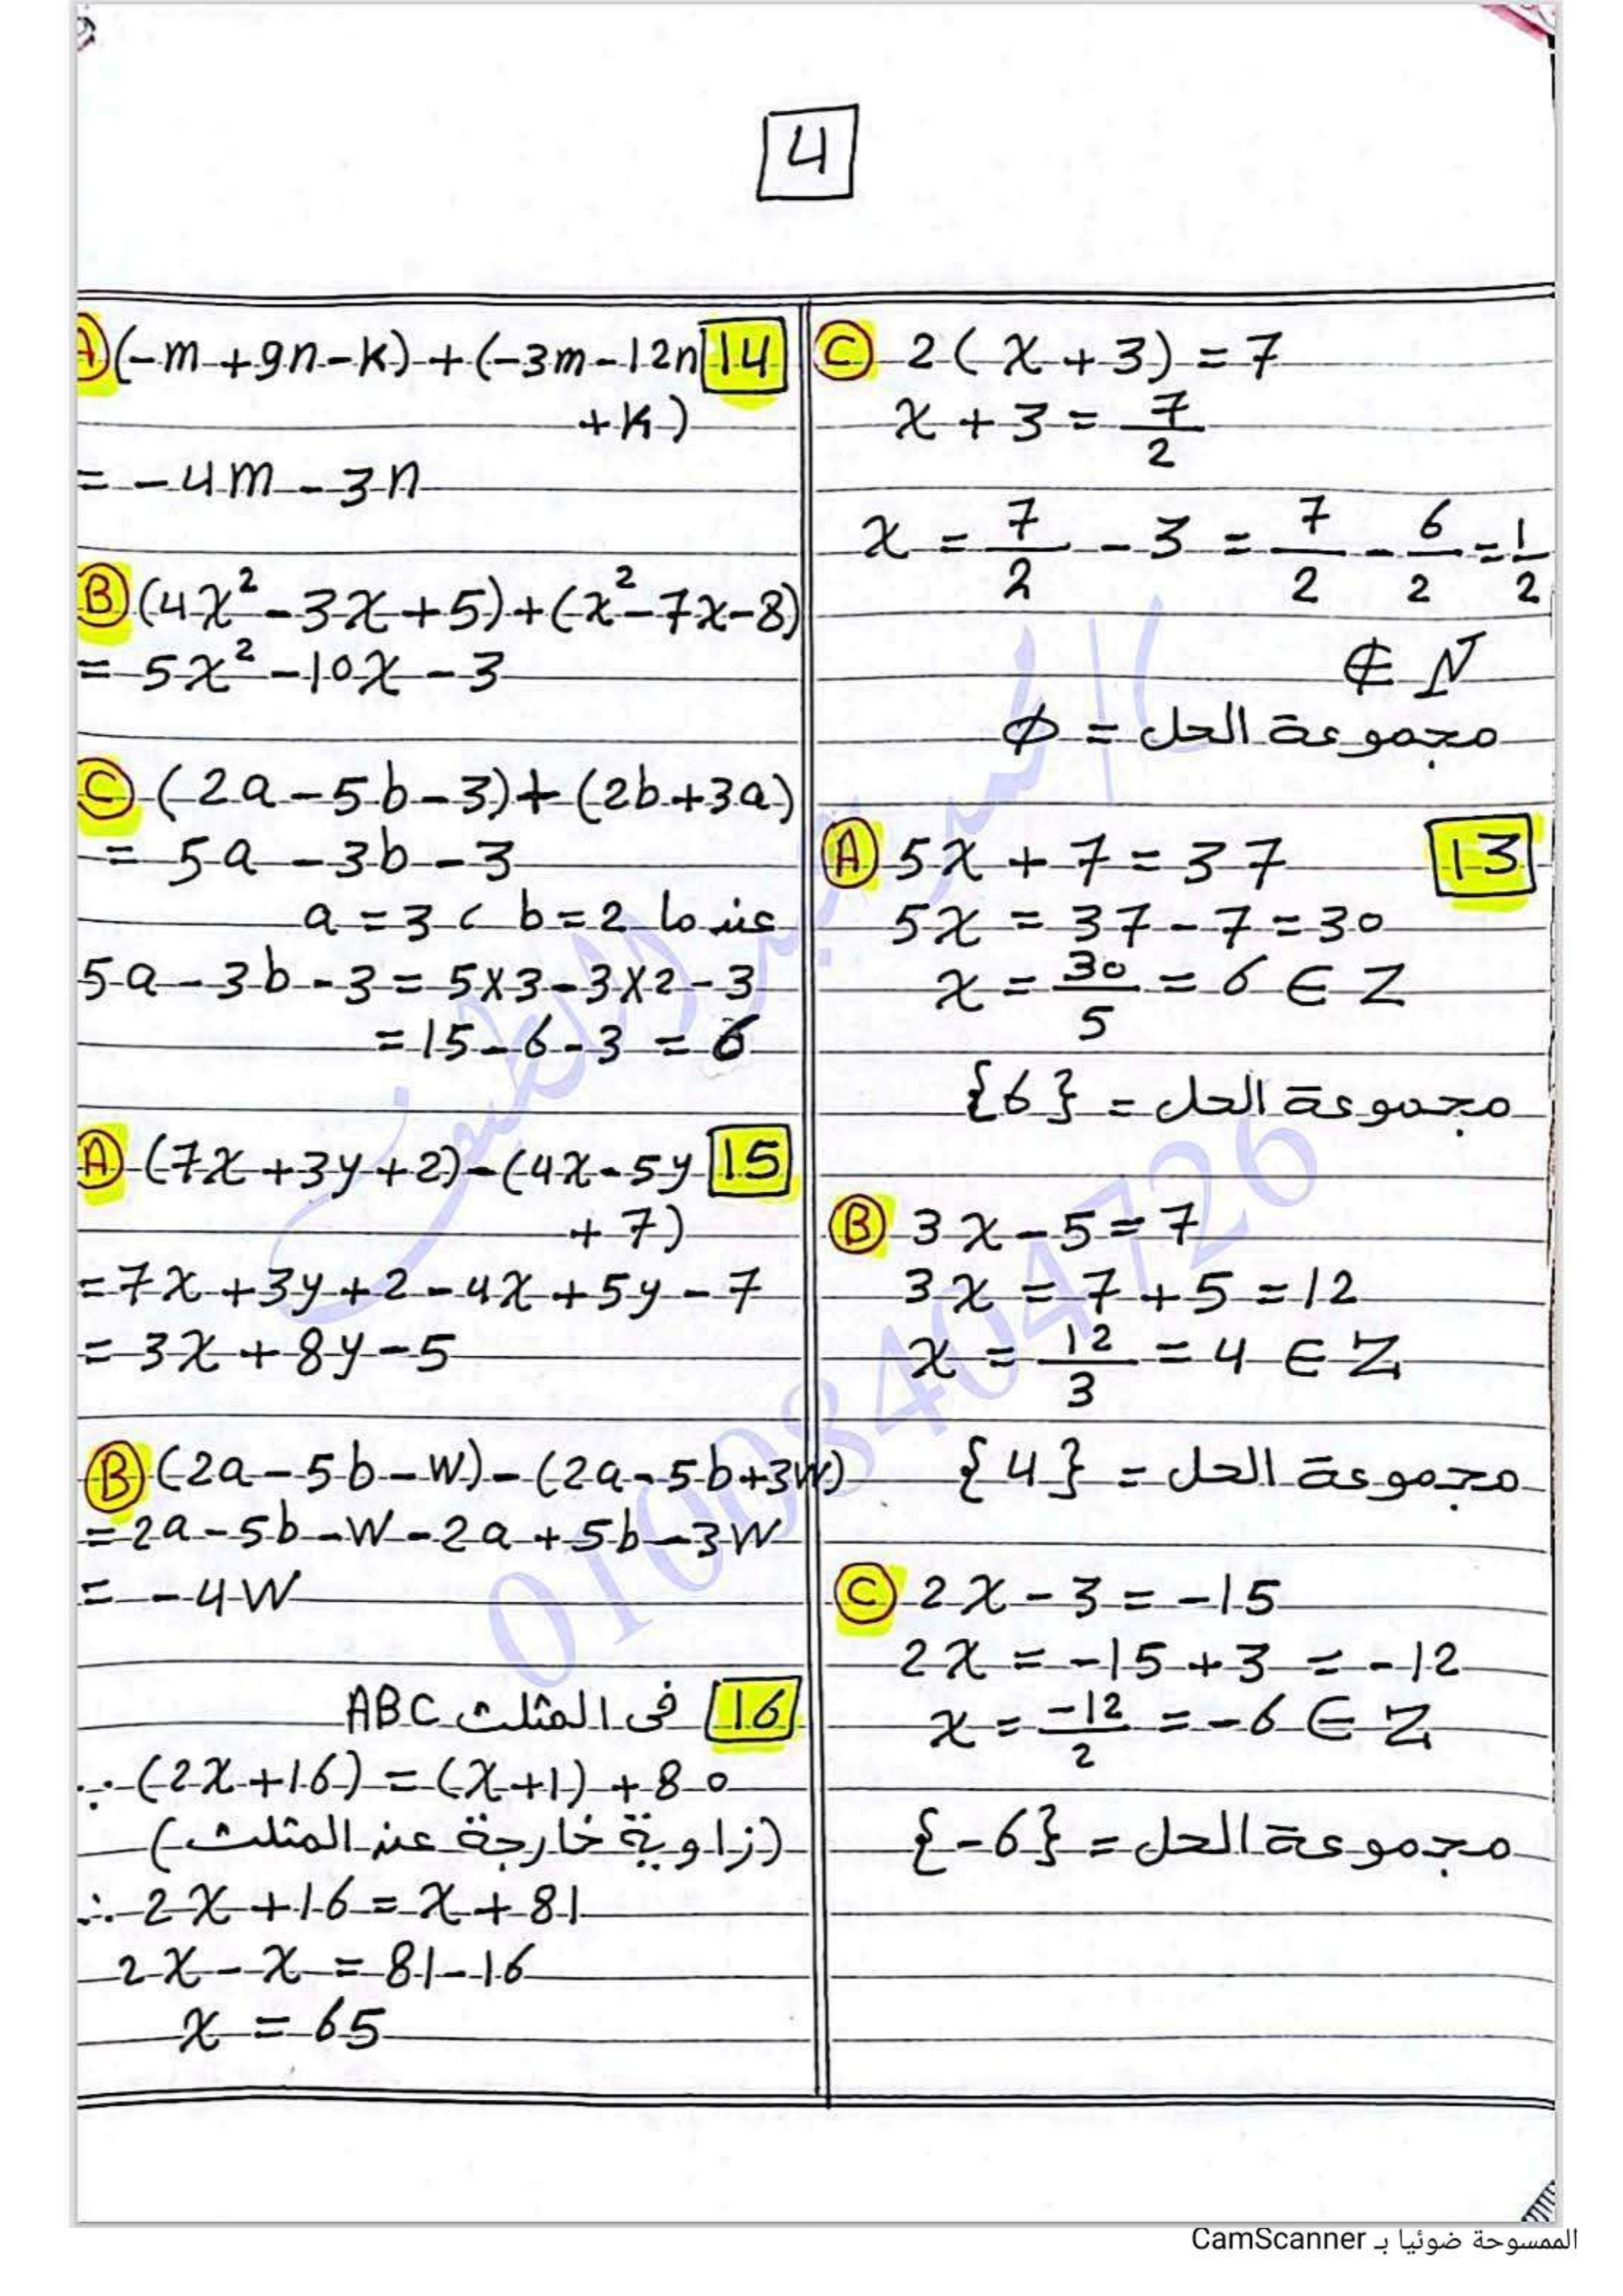 4
C 2(x + 3) = 7
x + 3 = 7/2
x = 7/2 - 3 = 7/2 - 6/2 = 1/2
∉ N
مجموعة الحل = ∅
13
A 5x + 7 = 37
5x = 37 - 7 = 30
x = 30/5 = 6 ∈ Z
مجموعة الحل = {6}
B 3x - 5 = 7
3x = 7 + 5 = 12
x = 12/3 = 4 ∈ Z
مجموعة الحل = {4}
C 2x - 3 = -15
2x = -15 + 3 = -12
x = -12/2 = -6 ∈ Z
مجموعة الحل = {-6}
14
A (-m + 9n - k) + (-3m - 12n
+ k)
= -4m - 3n
B (4x² - 3x + 5) + (x² - 7x - 8)
= 5x² - 10x - 3
C (2a - 5b - 3) + (2b + 3a)
= 5a - 3b - 3
عندما a = 3 ، b = 2
5a - 3b - 3 = 5×3 - 3×2 - 3
= 15 - 6 - 3 = 6
15
A (7x + 3y + 2) - (4x - 5y
+ 7)
= 7x + 3y + 2 - 4x + 5y - 7
= 3x + 8y - 5
B (2a - 5b - w) - (2a - 5b + 3w)
= 2a - 5b - w - 2a + 5b - 3w
= -4w
16 فى المثلث ABC
∵ (2x + 16) = (x + 1) + 80
(زاوية خارجة عند المثلث)
∴ 2x + 16 = x + 81
2x - x = 81 - 16
x = 65
01008404726
الممسوحة ضوئيا بـ CamScanner